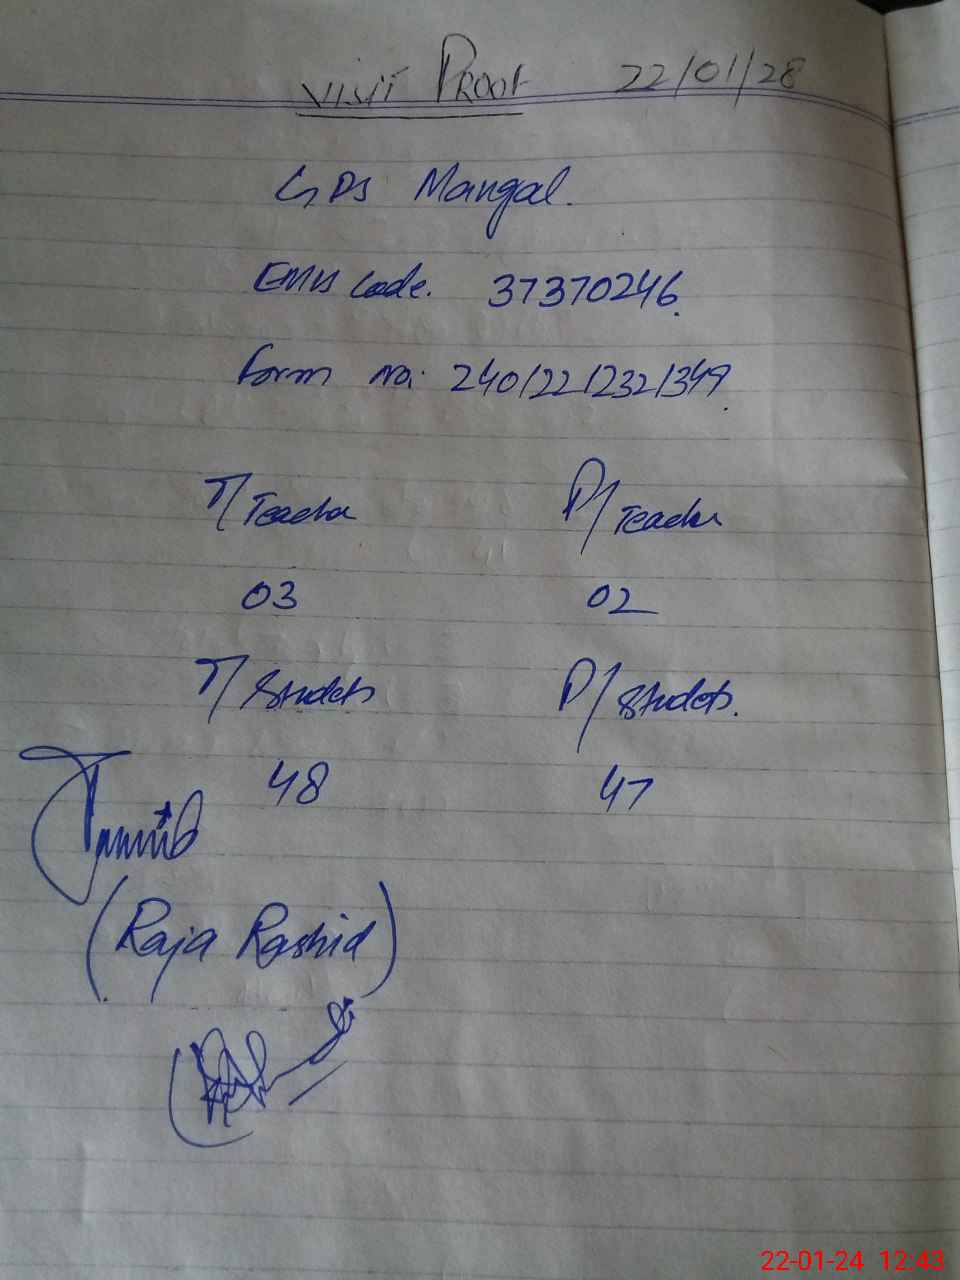 Visit Proof 22/01/28
GPS Mangal.
EMIS Code. 37370246.
Form no: 240/22/232/349.
T/Teacher P/Teacher
03 02
T/Students P/Students.
48 47
(Raja Rashid)
22-01-24 12:43